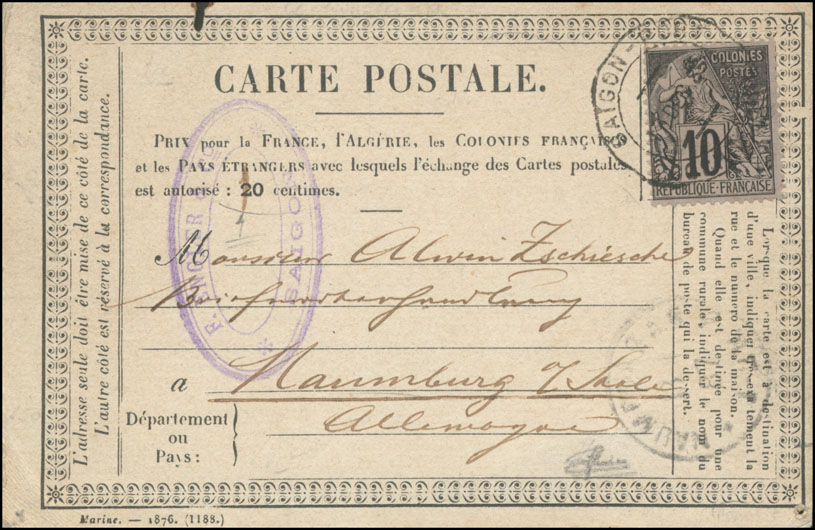 CARTE POSTALE.
PRIX pour la FRANCE, l'ALGÉRIE, les COLONIES FRANÇAISES
et les PAYS ÉTRANGERS avec lesquels l'échange des Cartes postales
est autorisé : 20 centimes.
COLONIES
POSTES
10
RÉPUBLIQUE FRANÇAISE
SAIGON
SAIGON
Monsieur Alwin Zschiesche
Briefmarkenhandlung
à Naumburg a/Saale
Département
ou
Pays :
Allemagne
L'adresse seule doit être mise de ce côté de la carte.
L'autre côté est réservé à la correspondance.
Lorsque la carte est à destination
d'une ville, indiquer très exactement la
rue et le numéro de la maison.
Quand elle est destinée pour une
commune rurale, indiquer le nom du
bureau de poste qui la dessert.
Marine. — 1876. (1188.)